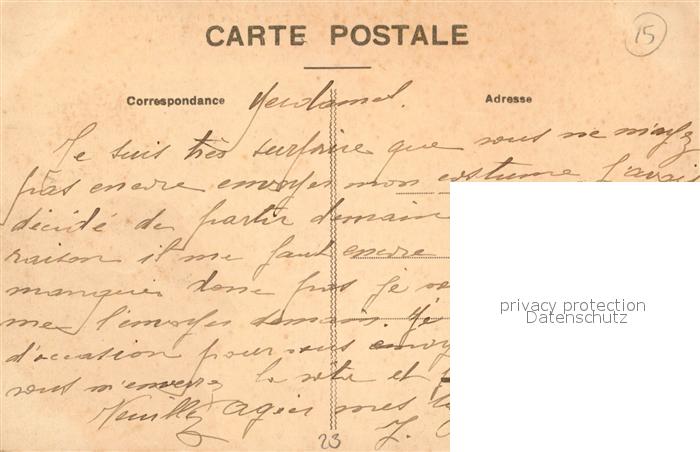 15
CARTE POSTALE
Correspondance
Adresse
Je suis très surprise que vous ne m'ayez
pas encore envoyer mon costume. J'avais
décidé de partir demain
raison il me faut encore
manquer donc pas je
me l'envoyer demain. Je
d'occasion pour vous envoy
vous m'enverrez la note et
Veuillez agréer mes
J.
23
privacy protection
Datenschutz